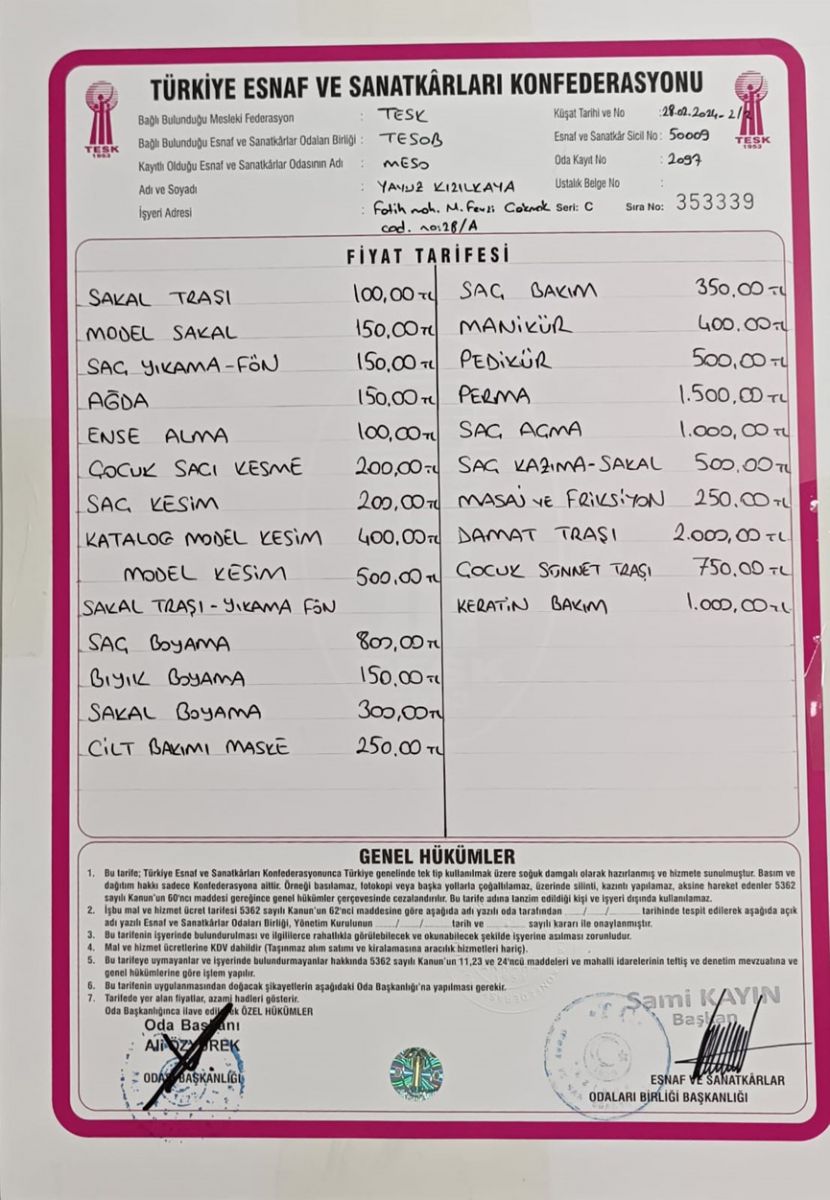 TÜRKİYE ESNAF VE SANATKÂRLARI KONFEDERASYONU
TESK
1953
TESK
1953
Bağlı Bulunduğu Mesleki Federasyon : TESK
Küşat Tarihi ve No : 28.02.2024-2/2
Bağlı Bulunduğu Esnaf ve Sanatkârlar Odaları Birliği : TESOB
Esnaf ve Sanatkâr Sicil No : 50009
Kayıtlı Olduğu Esnaf ve Sanatkârlar Odasının Adı : MESO
Oda Kayıt No : 2097
Adı ve Soyadı : YAVUZ KIZILKAYA
Ustalık Belge No :
İşyeri Adresi : Fatih mah. M. Fevzi Çakmak
Seri: C Sıra No: 353339
cad. no:28/A
FİYAT TARİFESİ
SAKAL TRAŞI 100,00 TL
MODEL SAKAL 150,00 TL
SAÇ YIKAMA-FÖN 150,00 TL
AĞDA 150,00 TL
ENSE ALMA 100,00 TL
ÇOCUK SAÇI KESME 200,00 TL
SAÇ KESİM 200,00 TL
KATALOG MODEL KESİM 400,00 TL
MODEL KESİM 500,00 TL
SAKAL TRAŞI - YIKAMA FÖN
SAÇ BOYAMA 800,00 TL
BIYIK BOYAMA 150,00 TL
SAKAL BOYAMA 300,00 TL
CİLT BAKIMI MASKE 250,00 TL
SAÇ BAKIM 350,00 TL
MANİKÜR 400.00 TL
PEDİKÜR 500,00 TL
PERMA 1.500,00 TL
SAÇ AÇMA 1.000,00 TL
SAÇ KAZIMA-SAKAL 500,00 TL
MASAJ VE FRİKSİYON 250.00 TL
DAMAT TRAŞI 2.000,00 TL
ÇOCUK SÜNNET TRAŞI 750.00 TL
KERATİN BAKIM 1.000,00 TL
GENEL HÜKÜMLER
1. Bu tarife; Türkiye Esnaf ve Sanatkârları Konfederasyonunca Türkiye genelinde tek tip kullanılmak üzere soğuk damgalı olarak hazırlanmış ve hizmete sunulmuştur. Basım ve
dağıtım hakkı sadece Konfederasyona aittir. Örneği basılamaz, fotokopi veya başka yollarla çoğaltılamaz, üzerinde silinti, kazıntı yapılamaz, aksine hareket edenler 5362
sayılı Kanun'un 60'ncı maddesi gereğince genel hükümler çerçevesinde cezalandırılır. Bu tarife adına tanzim edildiği kişi ve işyeri dışında kullanılamaz.
2. İşbu mal ve hizmet ücret tarifesi 5362 sayılı Kanun'un 62'nci maddesine göre aşağıda adı yazılı oda tarafından ....../....../............ tarihinde tespit edilerek aşağıda açık
adı yazılı Esnaf ve Sanatkârlar Odaları Birliği, Yönetim Kurulunun ....../....../............ tarih ve ............ sayılı kararı ile onaylanmıştır.
3. Bu tarifenin işyerinde bulundurulması ve ilgililerce rahatlıkla görülebilecek ve okunabilecek şekilde işyerine asılması zorunludur.
4. Mal ve hizmet ücretlerine KDV dahildir (Taşınmaz alım satımı ve kiralamasına aracılık hizmetleri hariç).
5. Bu tarifeye uymayanlar ve işyerinde bulundurmayanlar hakkında 5362 sayılı Kanun'un 11,23 ve 24'ncü maddeleri ve mahalli idarelerinin teftiş ve denetim mevzuatına ve
genel hükümlerine göre işlem yapılır.
6. Bu tarifenin uygulanmasından doğacak şikayetlerin aşağıdaki Oda Başkanlığı'na yapılması gerekir.
7. Tarifede yer alan fiyatlar, azami hadleri gösterir.
Oda Başkanlığınca ilave edilecek ÖZEL HÜKÜMLER
Oda Başkanı
Ali ÖZYÜREK
ODA BAŞKANLIĞI
Sami KAYIN
Başkan
ESNAF VE SANATKÂRLAR
ODALARI BİRLİĞİ BAŞKANLIĞI